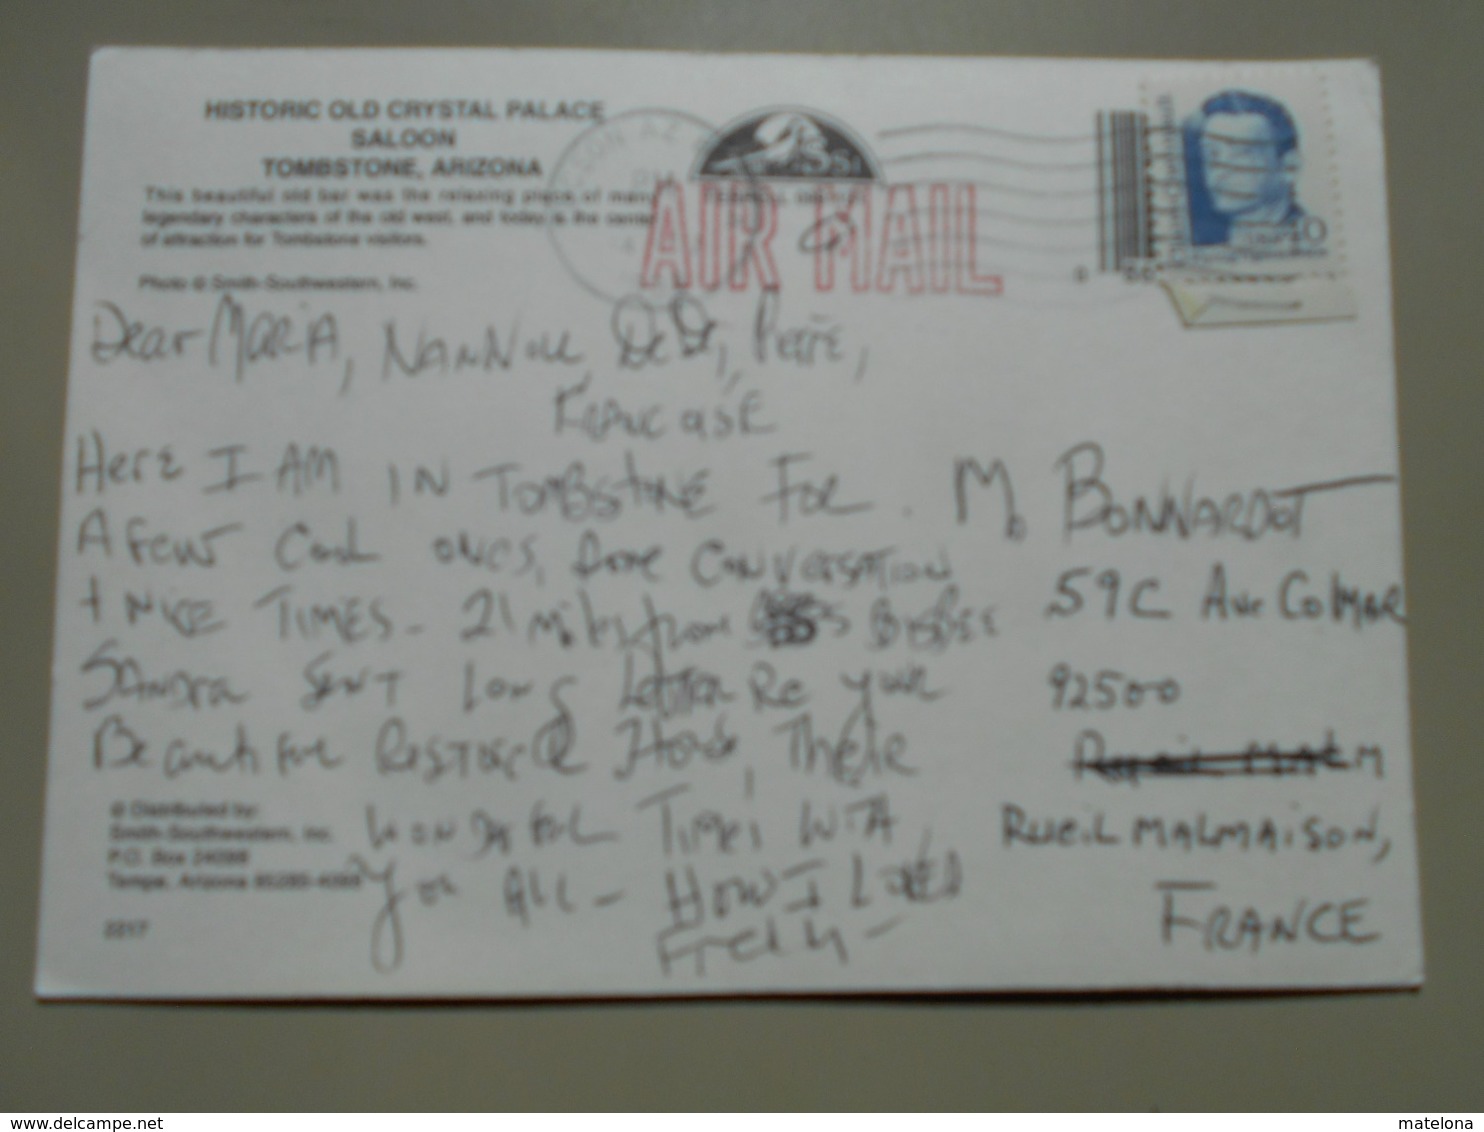 HISTORIC OLD CRYSTAL PALACE
SALOON
TOMBSTONE, ARIZONA
This beautiful old bar was the relaxing place of many
legendary characters of the old west, and today is the center
of attraction for Tombstone visitors.
Photo © Smith-Southwestern, Inc.
AIR MAIL
Dear MARIA, DeDe, Pete,
Here I AM IN TOMBSTONE FOR
A FEW Cool ones, Some CONVERSATION
+ NICE TIMES - 21 miles from BISBEE
SANDRA SENT Long Letter Re your
Beautiful House, There
WONDAFUL TIMES WITH
You ALL - HOW I LOVED
M. BONNARDOT
59C Ave COLMAR
92500
RUEIL MALMAISON,
FRANCE
© Distributed by:
Smith-Southwestern, Inc.
P.O. Box 24098
Tempe, Arizona 85285-4098
2217
matelona